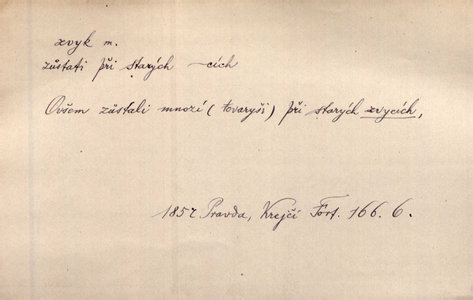 zvyk m.
zůstati při starých -cích
Ovšem zůstali mnozí (tovaryši) při starých zvycích,
1857 Pravda, Krejčí Fört. 166. 6.